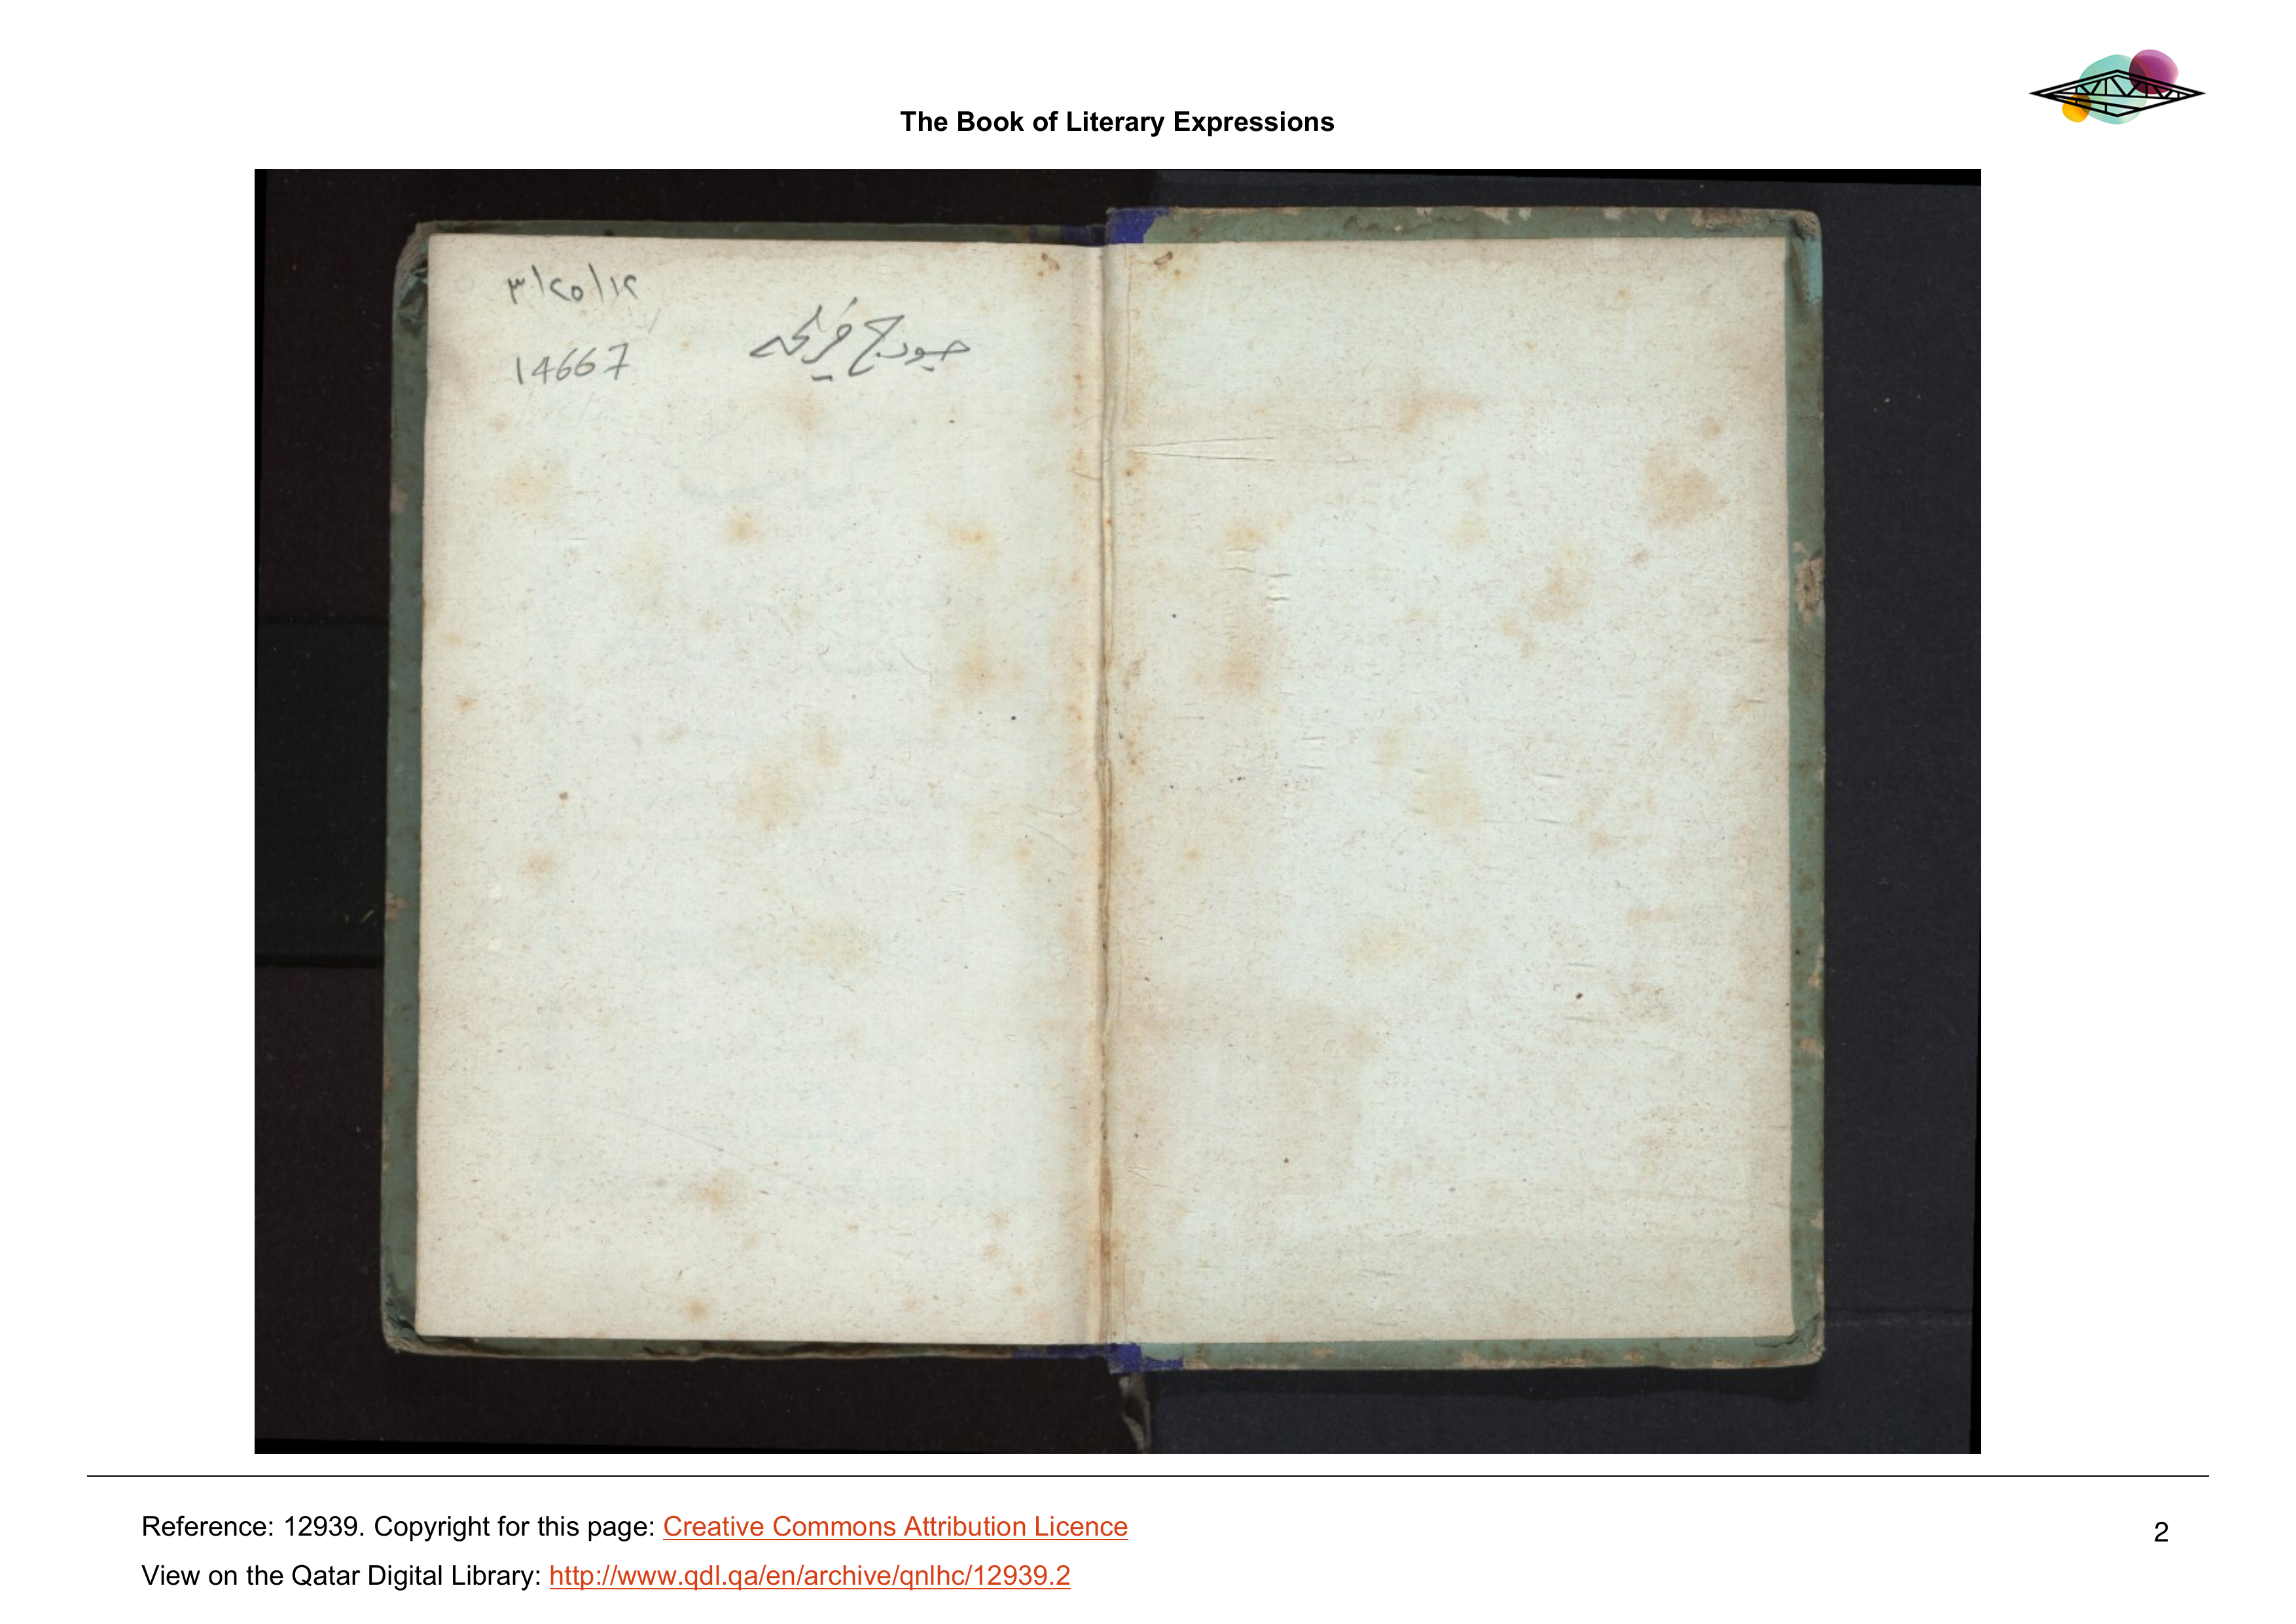 The Book of Literary Expressions
٣/٢٥/١٢
14667
جورج فرنكه
Reference: 12939. Copyright for this page: Creative Commons Attribution Licence
2
View on the Qatar Digital Library: http://www.qdl.qa/en/archive/qnlhc/12939.2